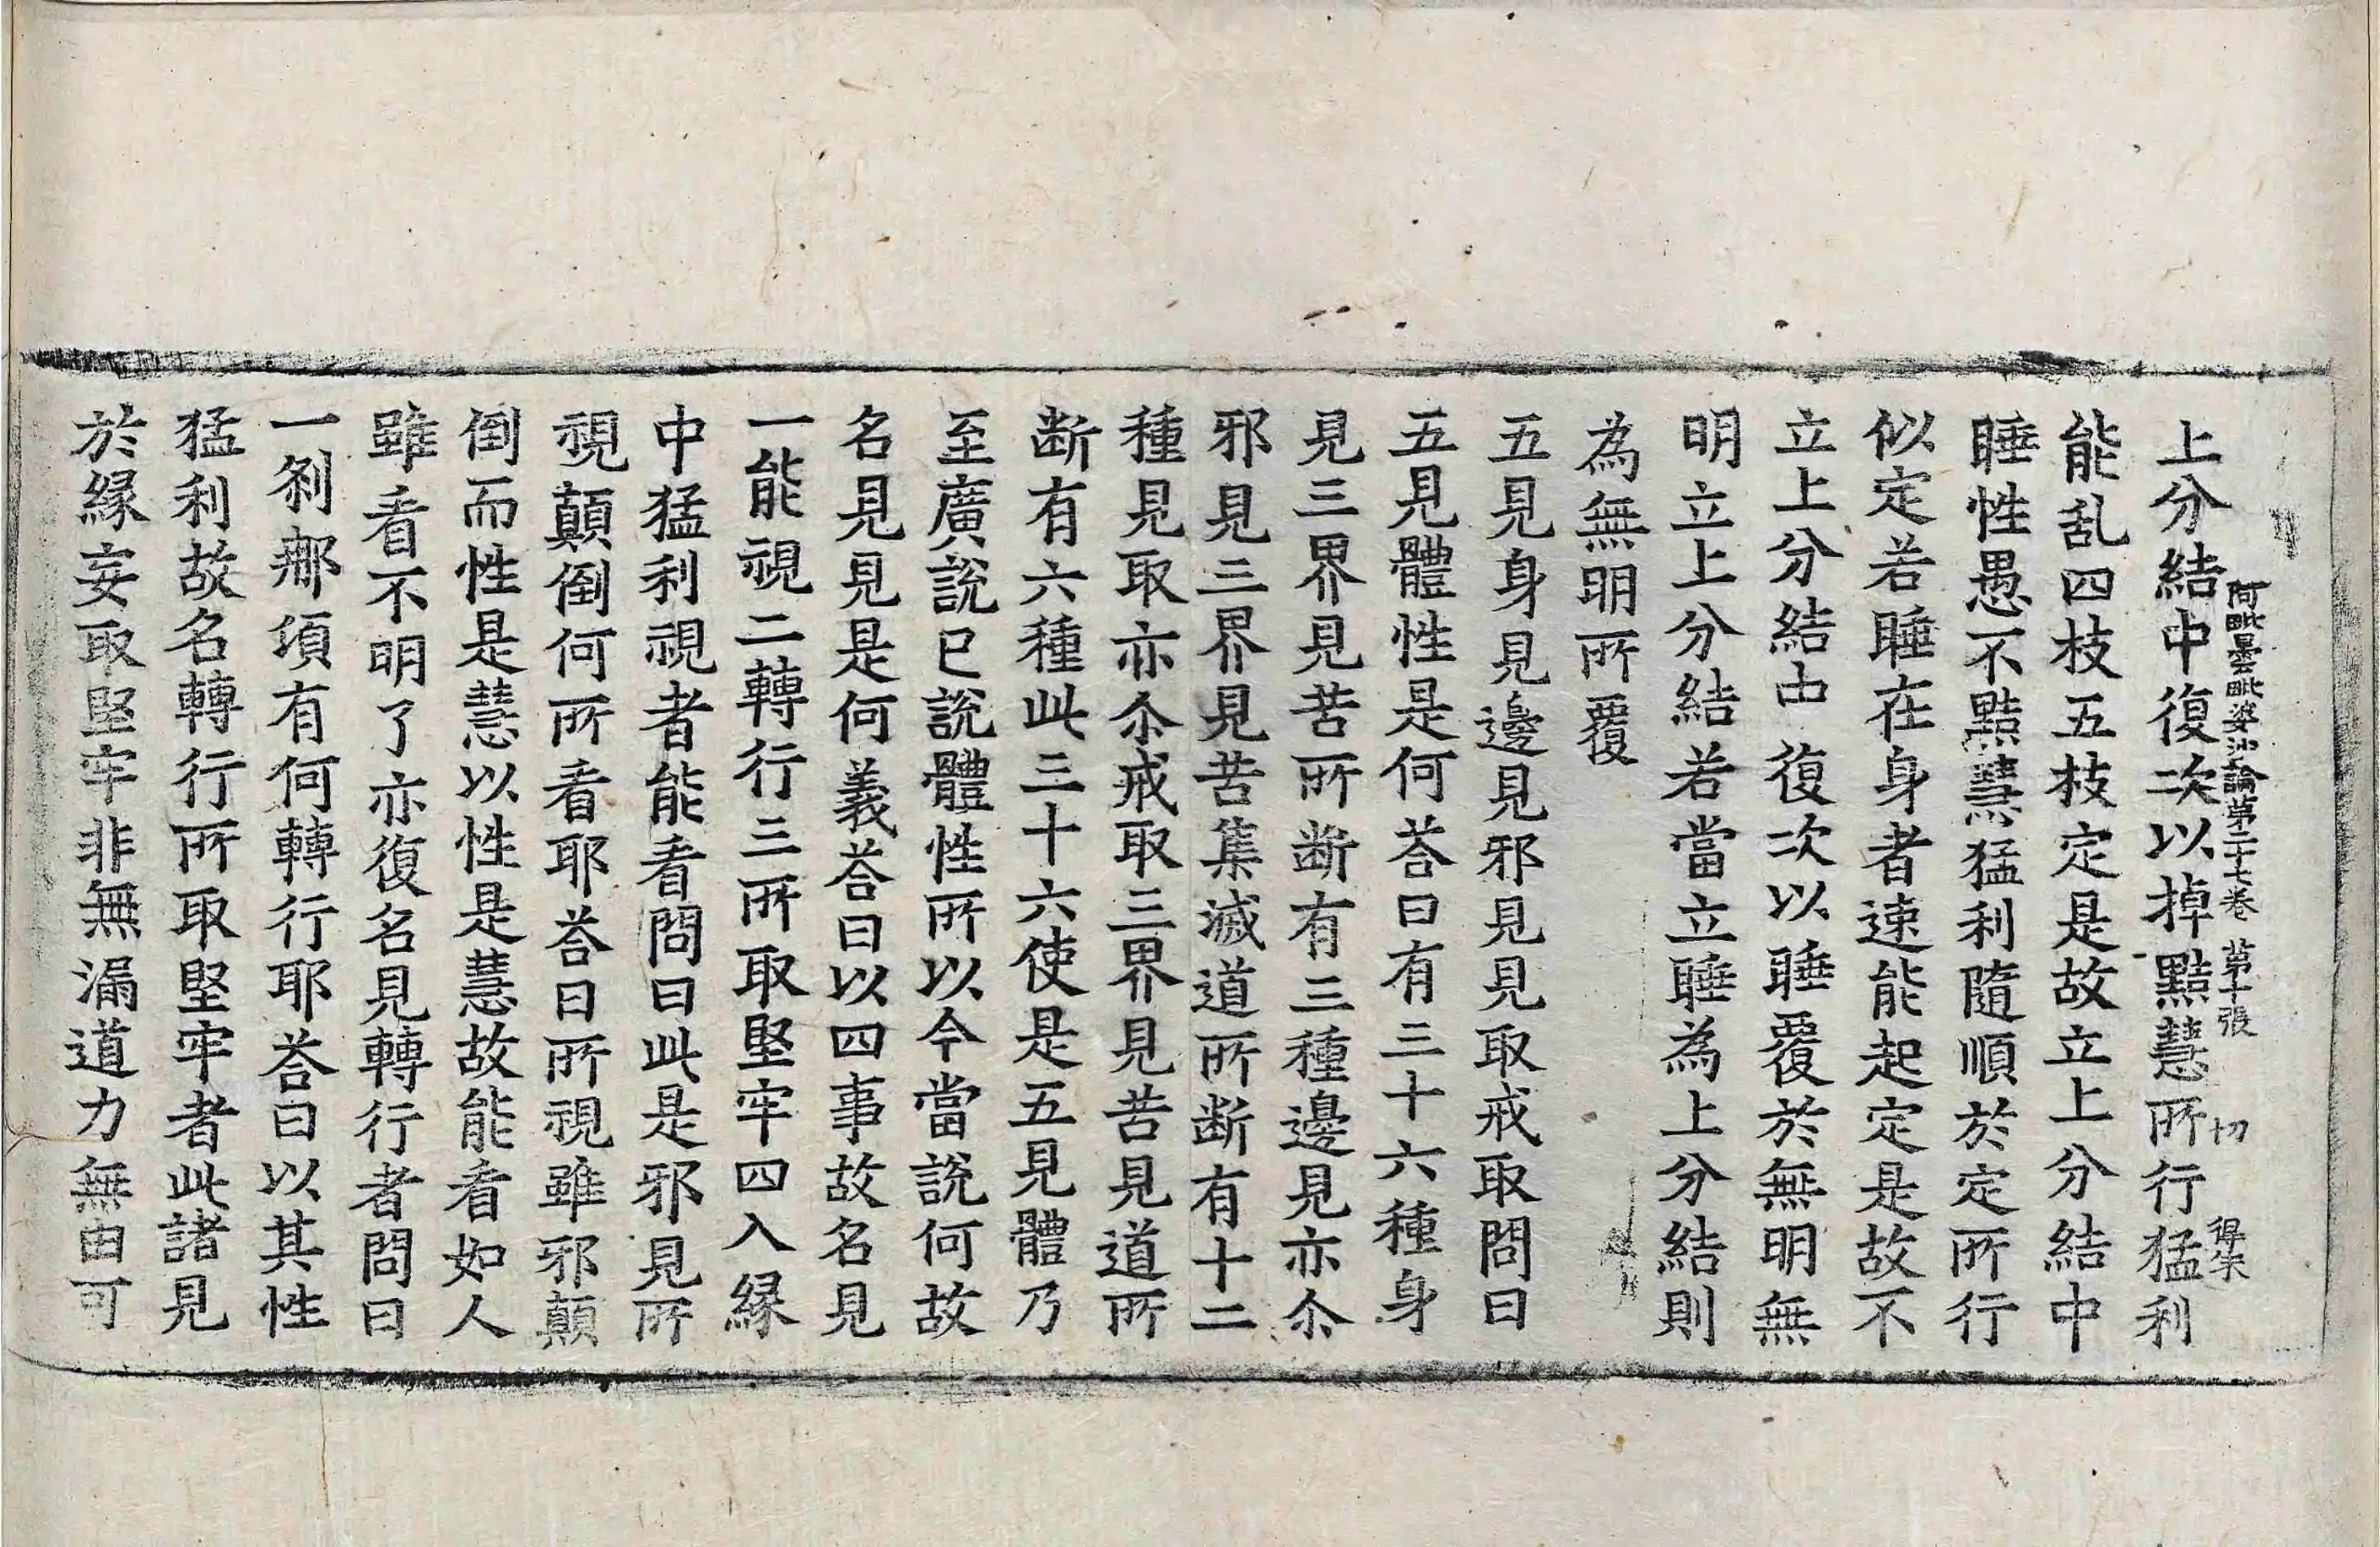 阿毗曇毗婆沙論第二十七卷　第十張　切
上分結中復次以掉黠慧所行猛利
能乱四枝五枝定是故立上分結中
睡性愚不黠慧猛利隨順於定所行
似定若睡在身者速能起定是故不
立上分結中復次以睡覆於無明無
明立上分結若當立睡為上分結則
為無明所覆
五見身見邊見邪見見取戒取問曰
五見體性是何荅曰有三十六種身
見三界見苦所断有三種邊見亦尒
邪見三界見苦集滅道所断有十二
種見取亦尒戒取三界見苦見道所
断有六種此三十六使是五見體乃
至廣說已說體性所以今當說何故
名見見是何義荅曰以四事故名見
一能視二轉行三所取堅牢四入縁
中猛利視者能看問曰此是邪見所
視顛倒何所看耶荅曰所視雖邪顛
倒而性是慧以性是慧故能看如人
雖看不明了亦復名見轉行者問曰
一刹那頃有何轉行耶荅曰以其性
猛利故名轉行所取堅牢者此諸見
於縁妄取堅牢非無漏道力無由可